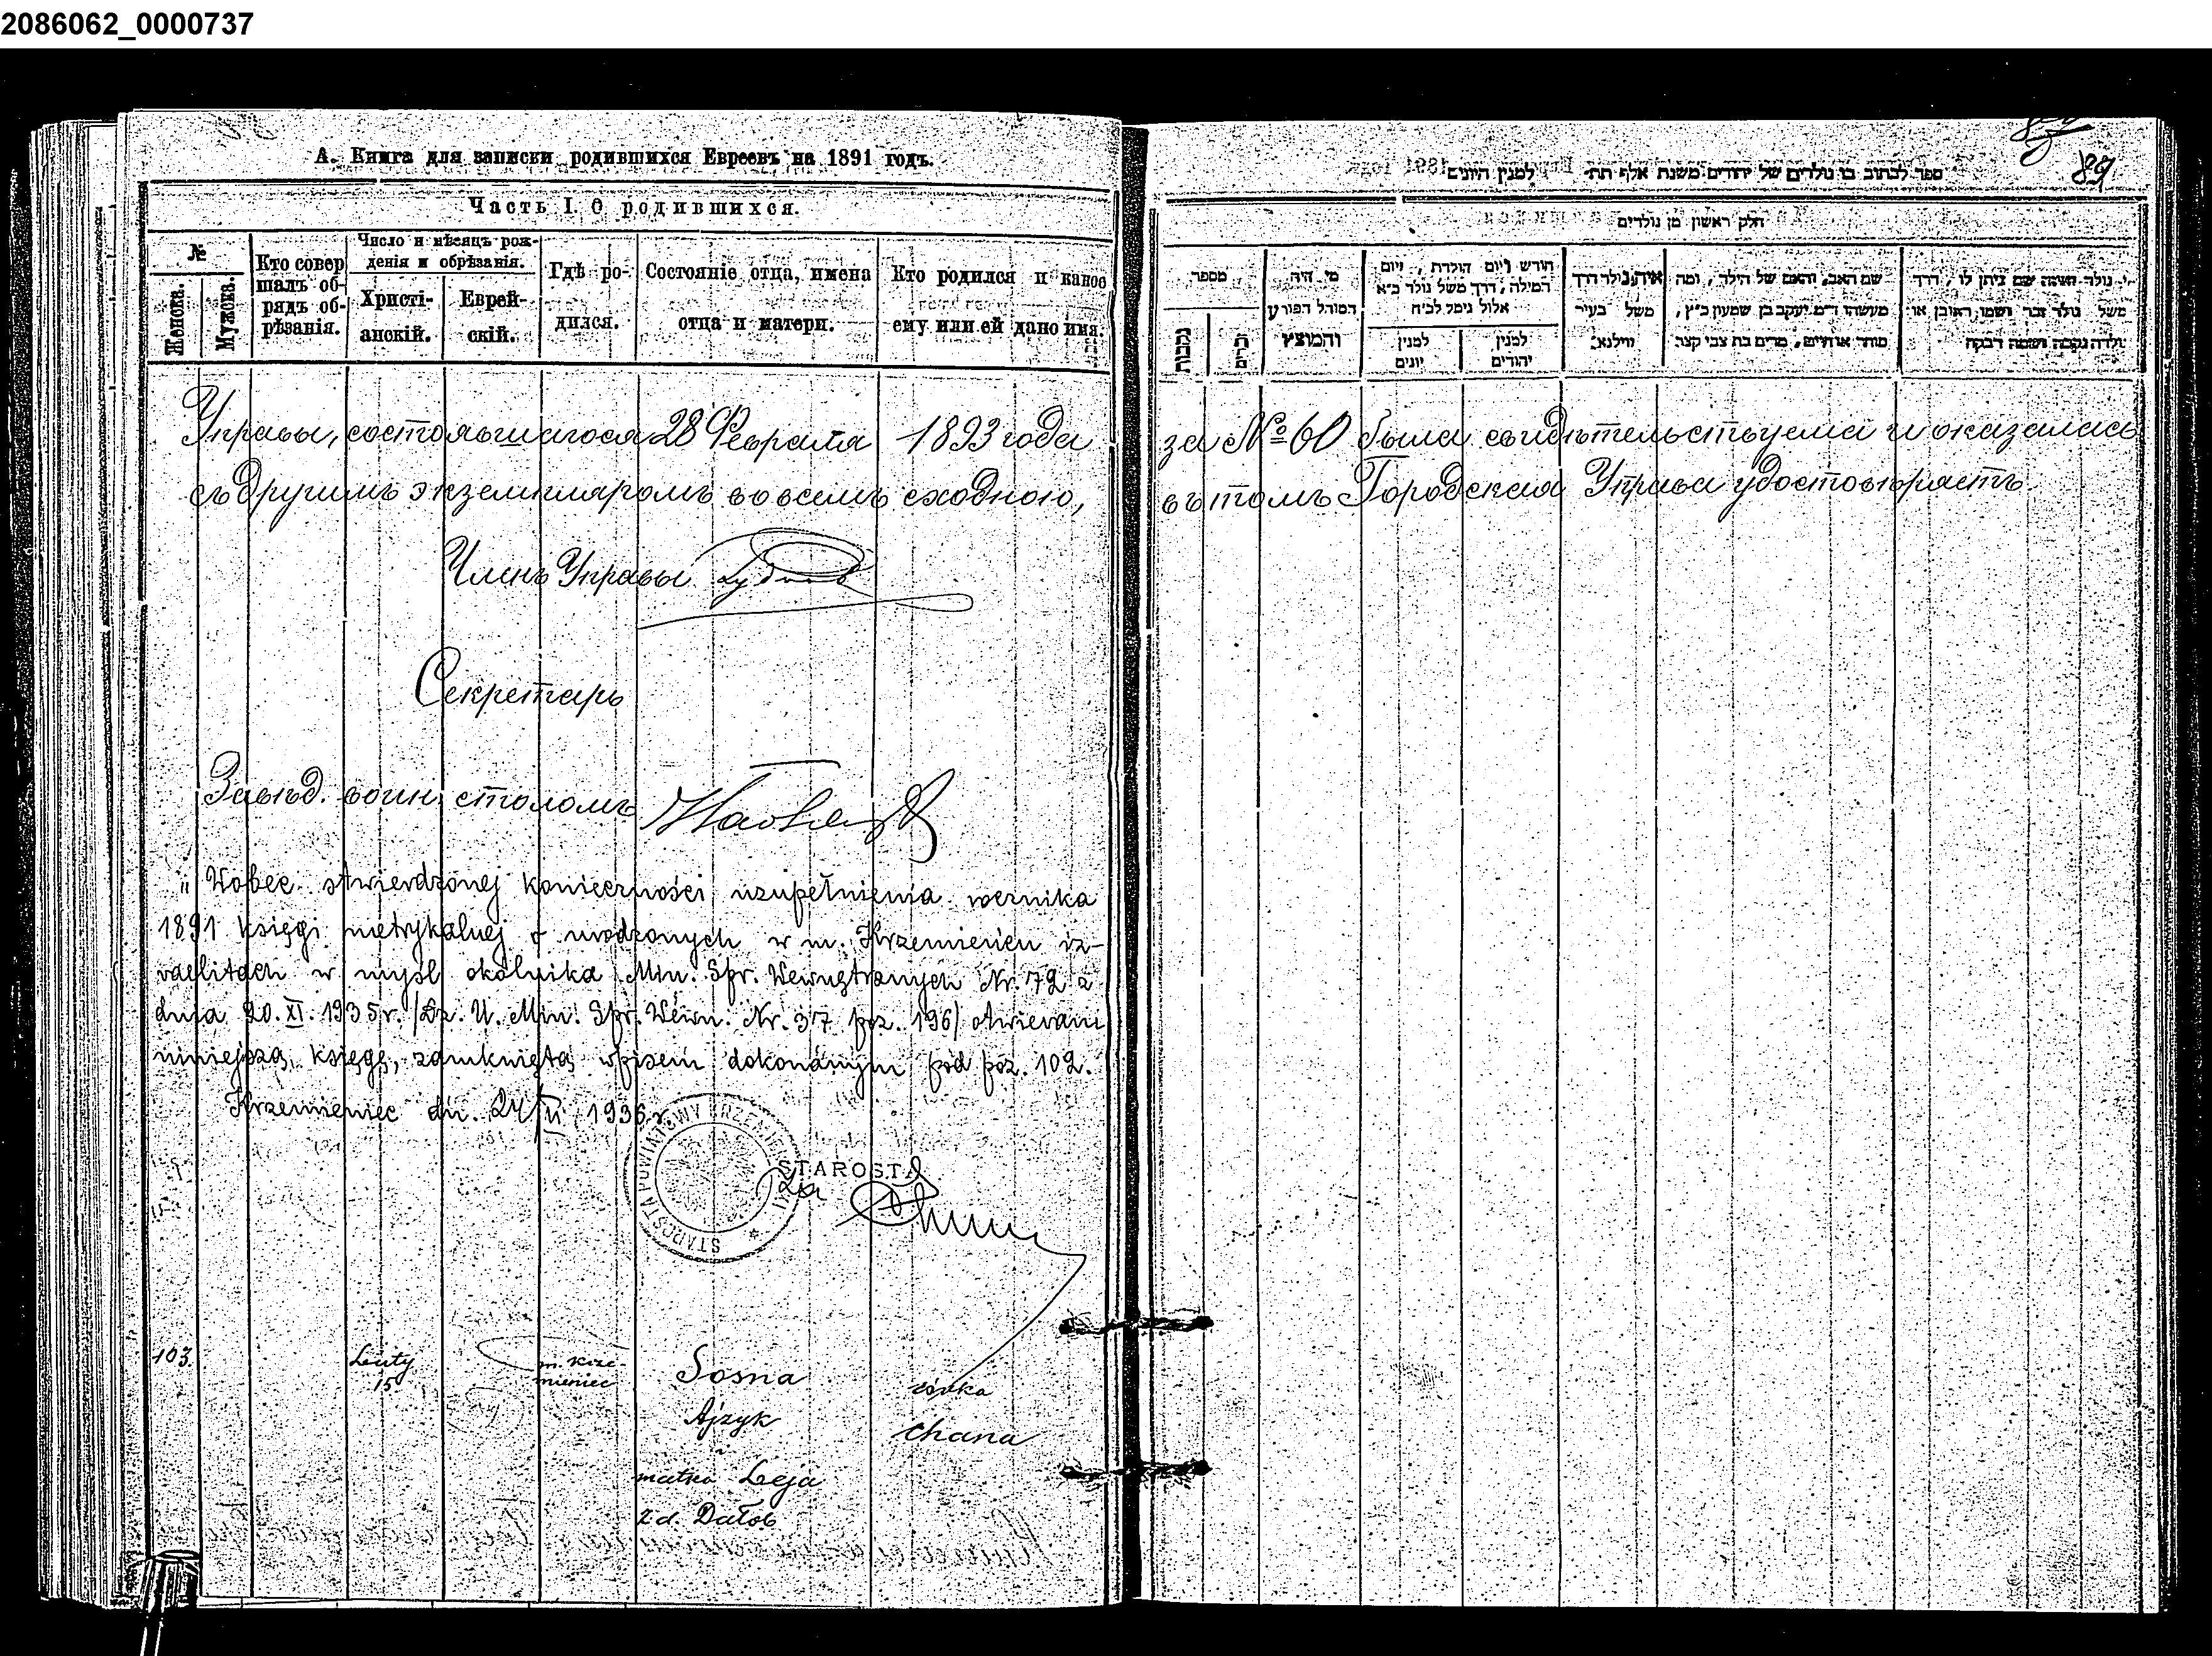 2086062_0000737
А. Книга для записки родившихся Евреевъ на 1891 годъ.
Часть I. О родившихся.
№
Женска.
Мужска.
Кто совер
шалъ об-
рядъ об-
рѣзанія.
Число и мѣсяцъ рож-
денія и обрѣзанія.
Христі-
анскій.
Еврей-
скій.
Гдѣ ро-
дился.
Состояніе отца, имена
отца и матери.
Кто родился и какое
ему или ей дано имя.
Управы, состоявшагося 28 Февраля 1893 года
съ другимъ экземпляромъ во всемъ сходною,
Членъ Управы
Секретарь
Завѣд. воин. столомъ
„Wobec stwierdzonej konieczności uzupełnienia rocznika
1891 księgi metrykalnej o urodzonych w m. Krzemieńcu iz-
raelitach w myśl okólnika Min. Spr. Wewnętrznych Nr. 72 z
dnia 20.XI.1935r. /Dz. U. Min. Spr. Wewn. Nr. 37 poz. 196/ otwieram
niniejszą księgę, zamkniętą wpisem dokonanym pod poz. 102.
Krzemieniec dn. 24/II 1936 r.
STAROSTA POWIATOWY KRZEMIENIECKI
STAROSTA
za
103.
Luty
15
m. Krze-
mieniec
Sosna
Ajzyk
matka Leja
z d. Dałob
córka
Chana
89
ספר לכתוב בו נולדים של יהודים משנת אלף תת־ למנין היונים
חלק ראשון מן נולדים
מספר
נקבות
זכרים
מי היה
המוהל הפורע
והמוצץ
חודש ויום הולדת, ויום
המילה, דרך משל נולד כ״א
אלול נימל לכ״ח
למנין
יונים
למנין
יהודים
איה נולד דרך
משל בעיר
ווילנא
שם האב, והאם של הילד, ומה
מעשהו ד״מ יעקב בן שמעון כ״ץ,
סוחר אורחים, מרים בת צבי קצב
מי נולד ואיזה שם ניתן לו, דרך
משל נולד זכר ושמו ראובן או
נולדה נקבה ושמה רבקה
за № 60 была свидѣтельствуема и оказалась
въ томъ Городская Управа удостовѣряетъ.